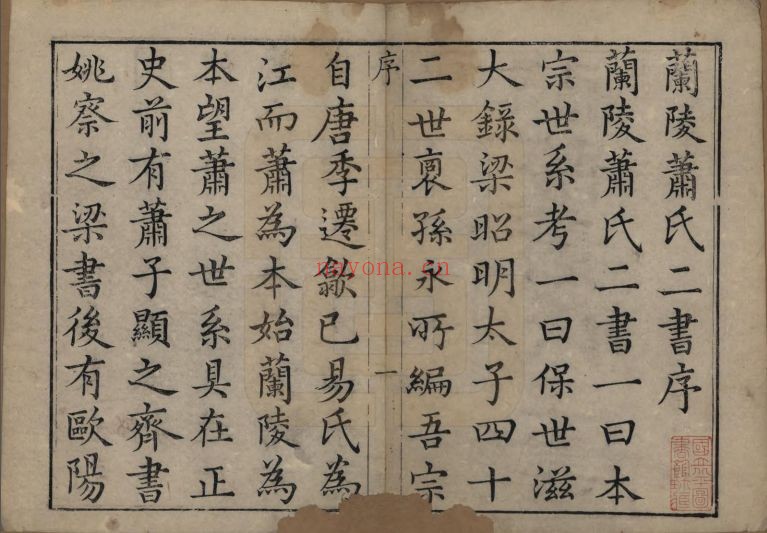 蘭陵蕭氏二書序
蘭陵蕭氏二書一曰本
宗世系考一曰保世滋
大錄梁昭明太子四十
二世裔孫永所編吾宗
序
一
自唐季遷歙已易氏為
江而蕭為本始蘭陵為
本望蕭之世系具在正
史前有蕭子顯之齊書
姚察之梁書後有歐陽
nayona.cn